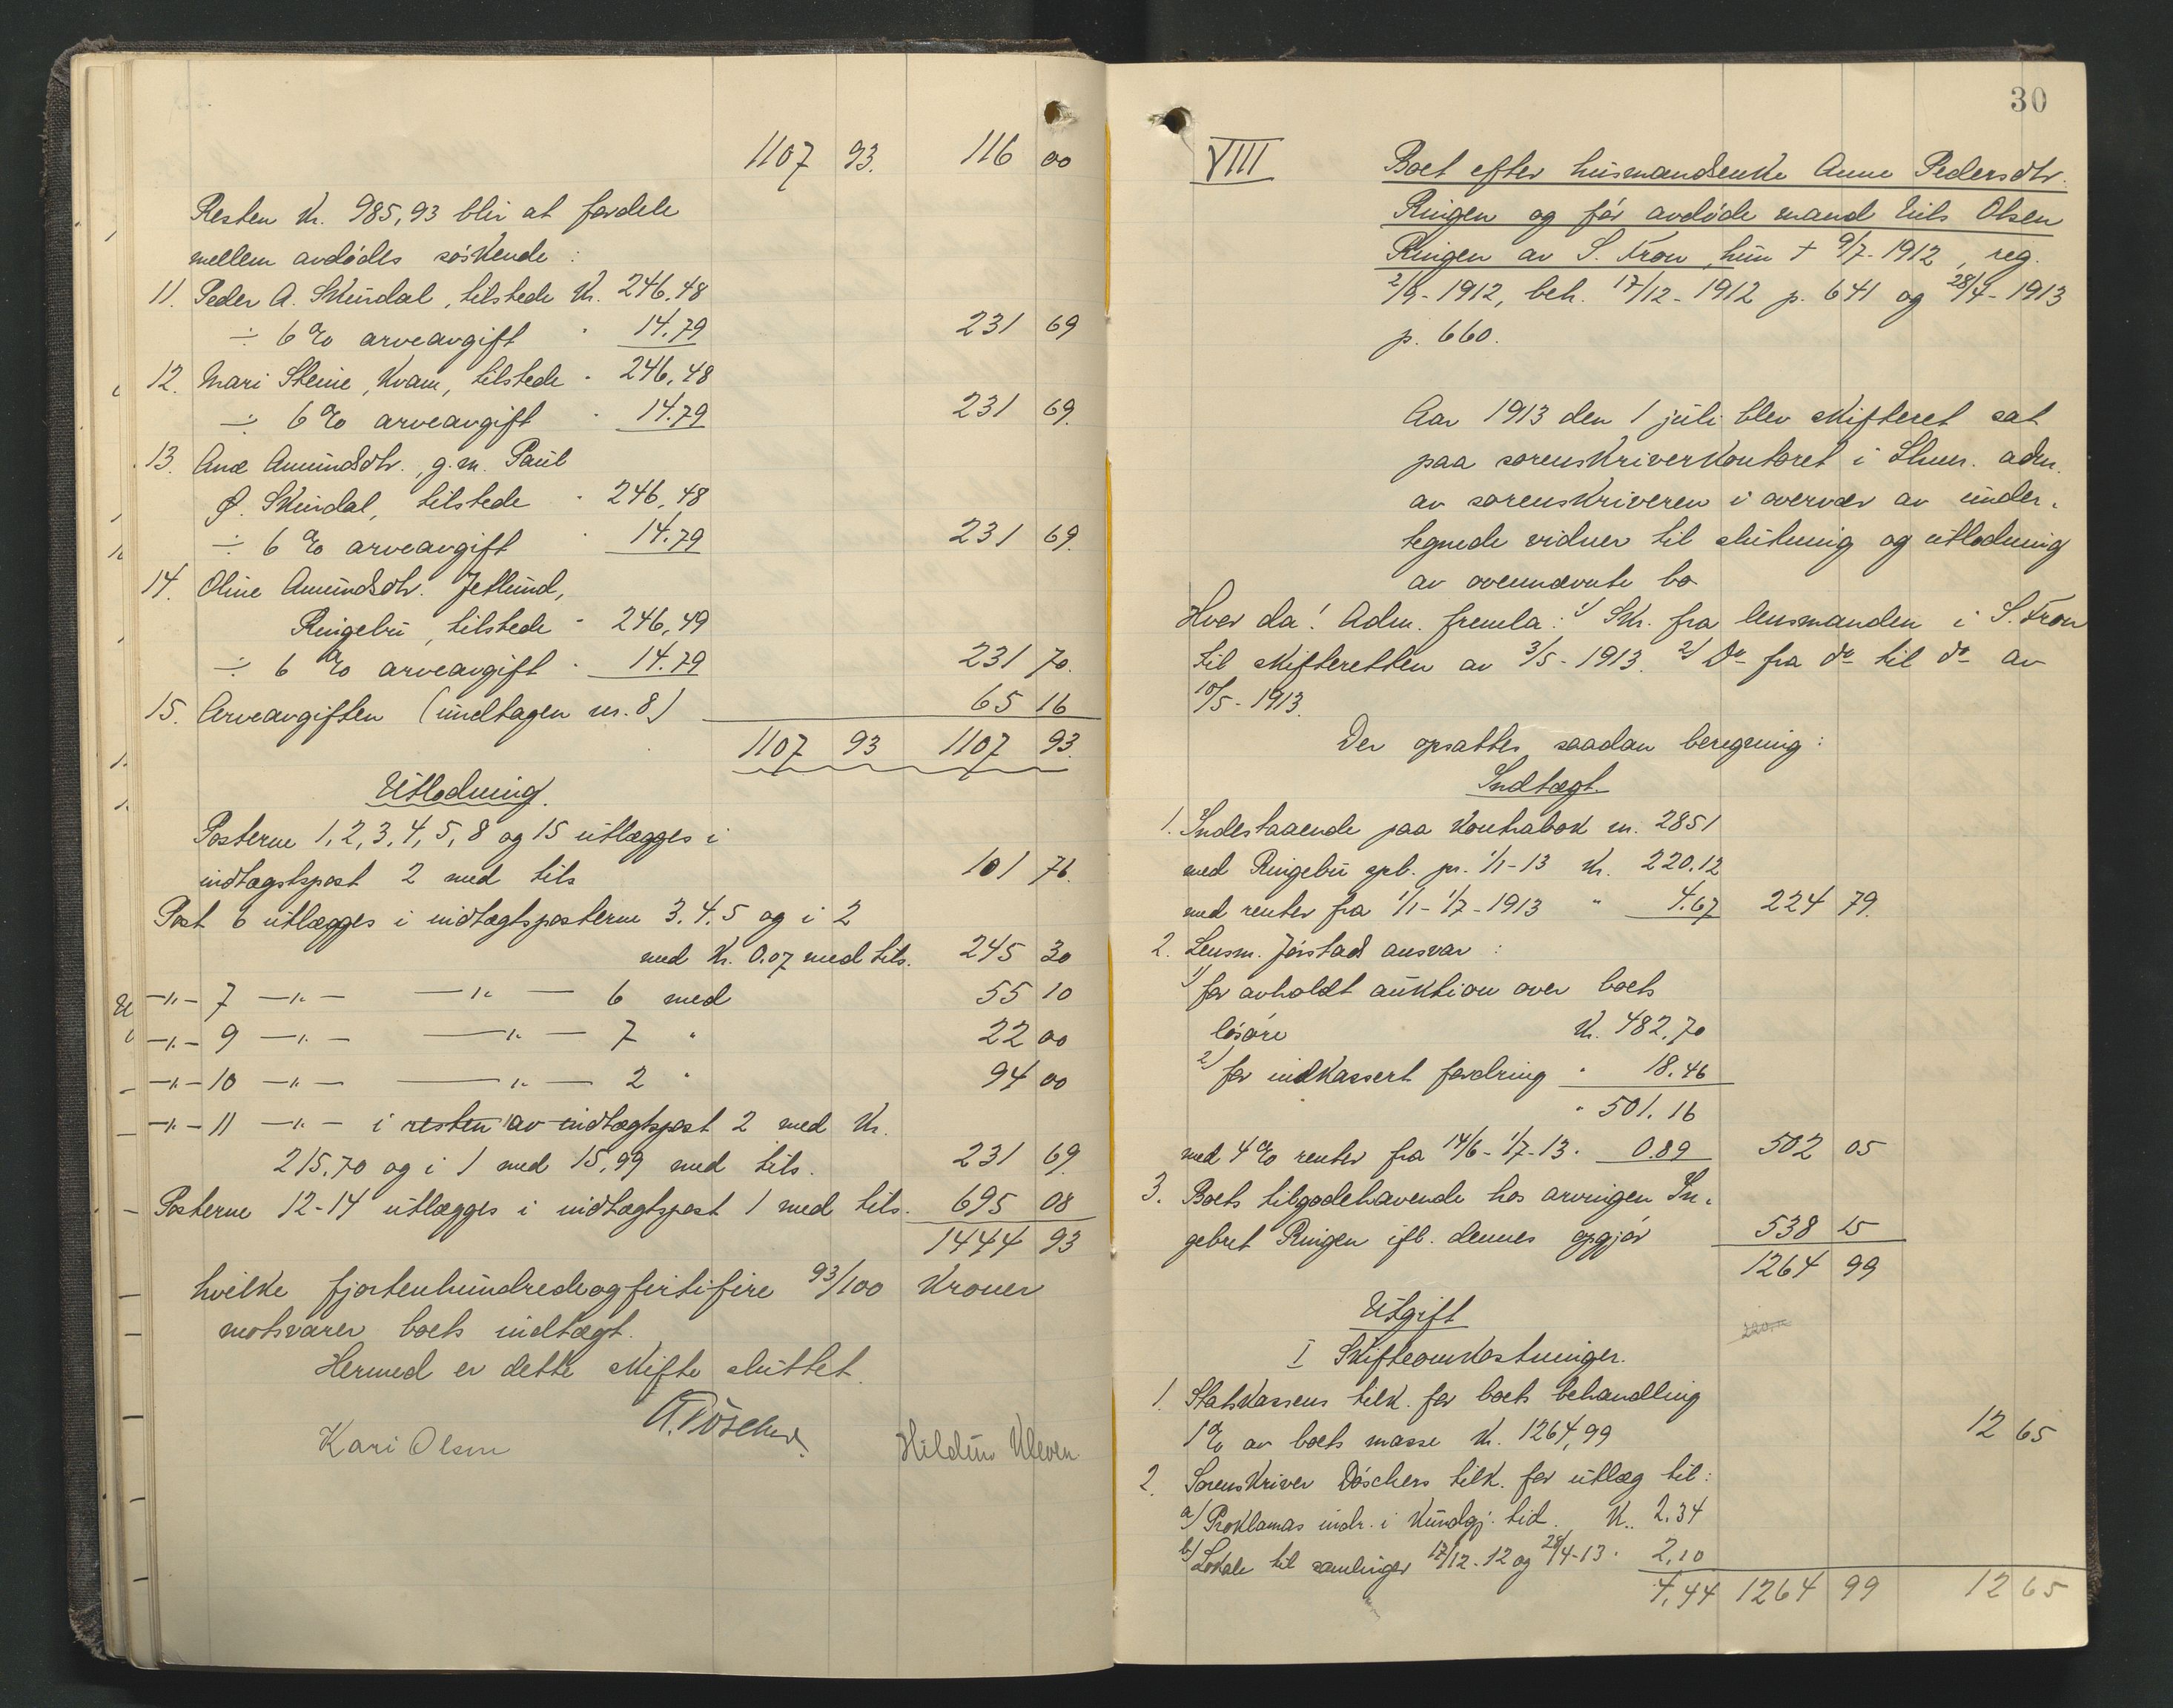 1107 93. 116 00
Resten Kr. 985,93 blir at fordele
mellem avdødes søskende :
11. Peder A. Skurdal, tilstede Kr. 246,48
÷ 6 % arveavgift " 14.79 231 69
12. Mari Steine, Kvam, tilstede " 246,48
÷ 6 % arveavgift " 14.79 231 69.
13. Ane Amundsdtr., g.m. Paul
P. Skurdal, tilstede " 246,48
÷ 6 % arveavgift " 14.79 231 69.
14. Oline Amundsdtr. Jetlund,
Ringebu, tilstede " 246,49
÷ 6 % arveavgift " 14.79 231 70.
15. Arveavgiften (undtagen nr. 8) 65 16
1107 93 1107 93.
Utlodning.
Posterne 1, 2, 3, 4, 5, 8 og 15 utlægges i
indtægtspost 2 med tils 101 76.
Post 6 utlægges i indtægtsposterne 3. 4. 5 og i 2
med Kr. 0.07 med tils. 245 30
—"— 7 —"— —"— 6 med 55 10
—"— 9 —"— —"— 7 " 22 00
—"— 10 —"— —"— 2 " 94 00
—"— 11 —"— i resten av indtægtspost 2 med Kr.
215.70 og i 1 med 15,99 med tils. 231 69.
Posterne 12-14 utlægges i indtægtspost 1 med tils. 695 08
1444 93
hvilke fjortenhundredeogfirtifire 93/100 Kroner
motsvarer boets indtægt.
Hermed er dette skifte sluttet.
Döscher
Kari Olsen Hildur Kleven
30
VIII Boet efter husmandsenke Anne Pedersdtr.
Ringen og før avdøde mand Nils Olsen
Ringen av S. Fron, hun † 9/7-1912, reg.
2/9-1912, beh. 17/12-1912 p. 641 og 28/4-1913
p. 660.
Aar 1913 den 1 juli blev skifteret sat
paa sorenskriverkontoret i Lhmr. adm.
av sorenskriveren i overvær av under-
tegnede vidner til slutning og utlodning
av ovennævnte bo
Hvor da! Adm. fremla: 1) Skr. fra lensmanden i S. Fron
til skifteretten av 3/5-1913. 2) Do fra do til do av
10/5-1913.
Der opsattes saadan beregning :
Indtægt.
1. Indestaaende paa Kontrabok nr. 2851
med Ringebu spb. pr. 1/1-13 Kr. 220.12
med renter fra 1/1-1/7-1913 " 4.67 224 79.
2. Lensm. Jørstads ansvar :
1) for avholdt auktion over boets
løsøre Kr. 482,70
2) for indkassert fordring " 18.46
" 501.16
med 4 % renter fra 14/6-1/7-13. 0.89 502 05
3. Boets tilgodehavende hos arvingen In-
gebret Ringen ifl. dennes opgjør 538 15
1264 99
Utgift
I Skifteomkostninger.
1. Statskassens tilk. for boets behandling
1 % av boets masse Kr. 1264,99 12 65
2. Sorenskriver Döschers tilk. for utlæg til:
a) Proklamas indr. i Kundgj. tid. Kr. 2.34
b) Lokale til samlinger 17/12-12 og 28/4-13 " 2,10
4,44 1264 99 12 65